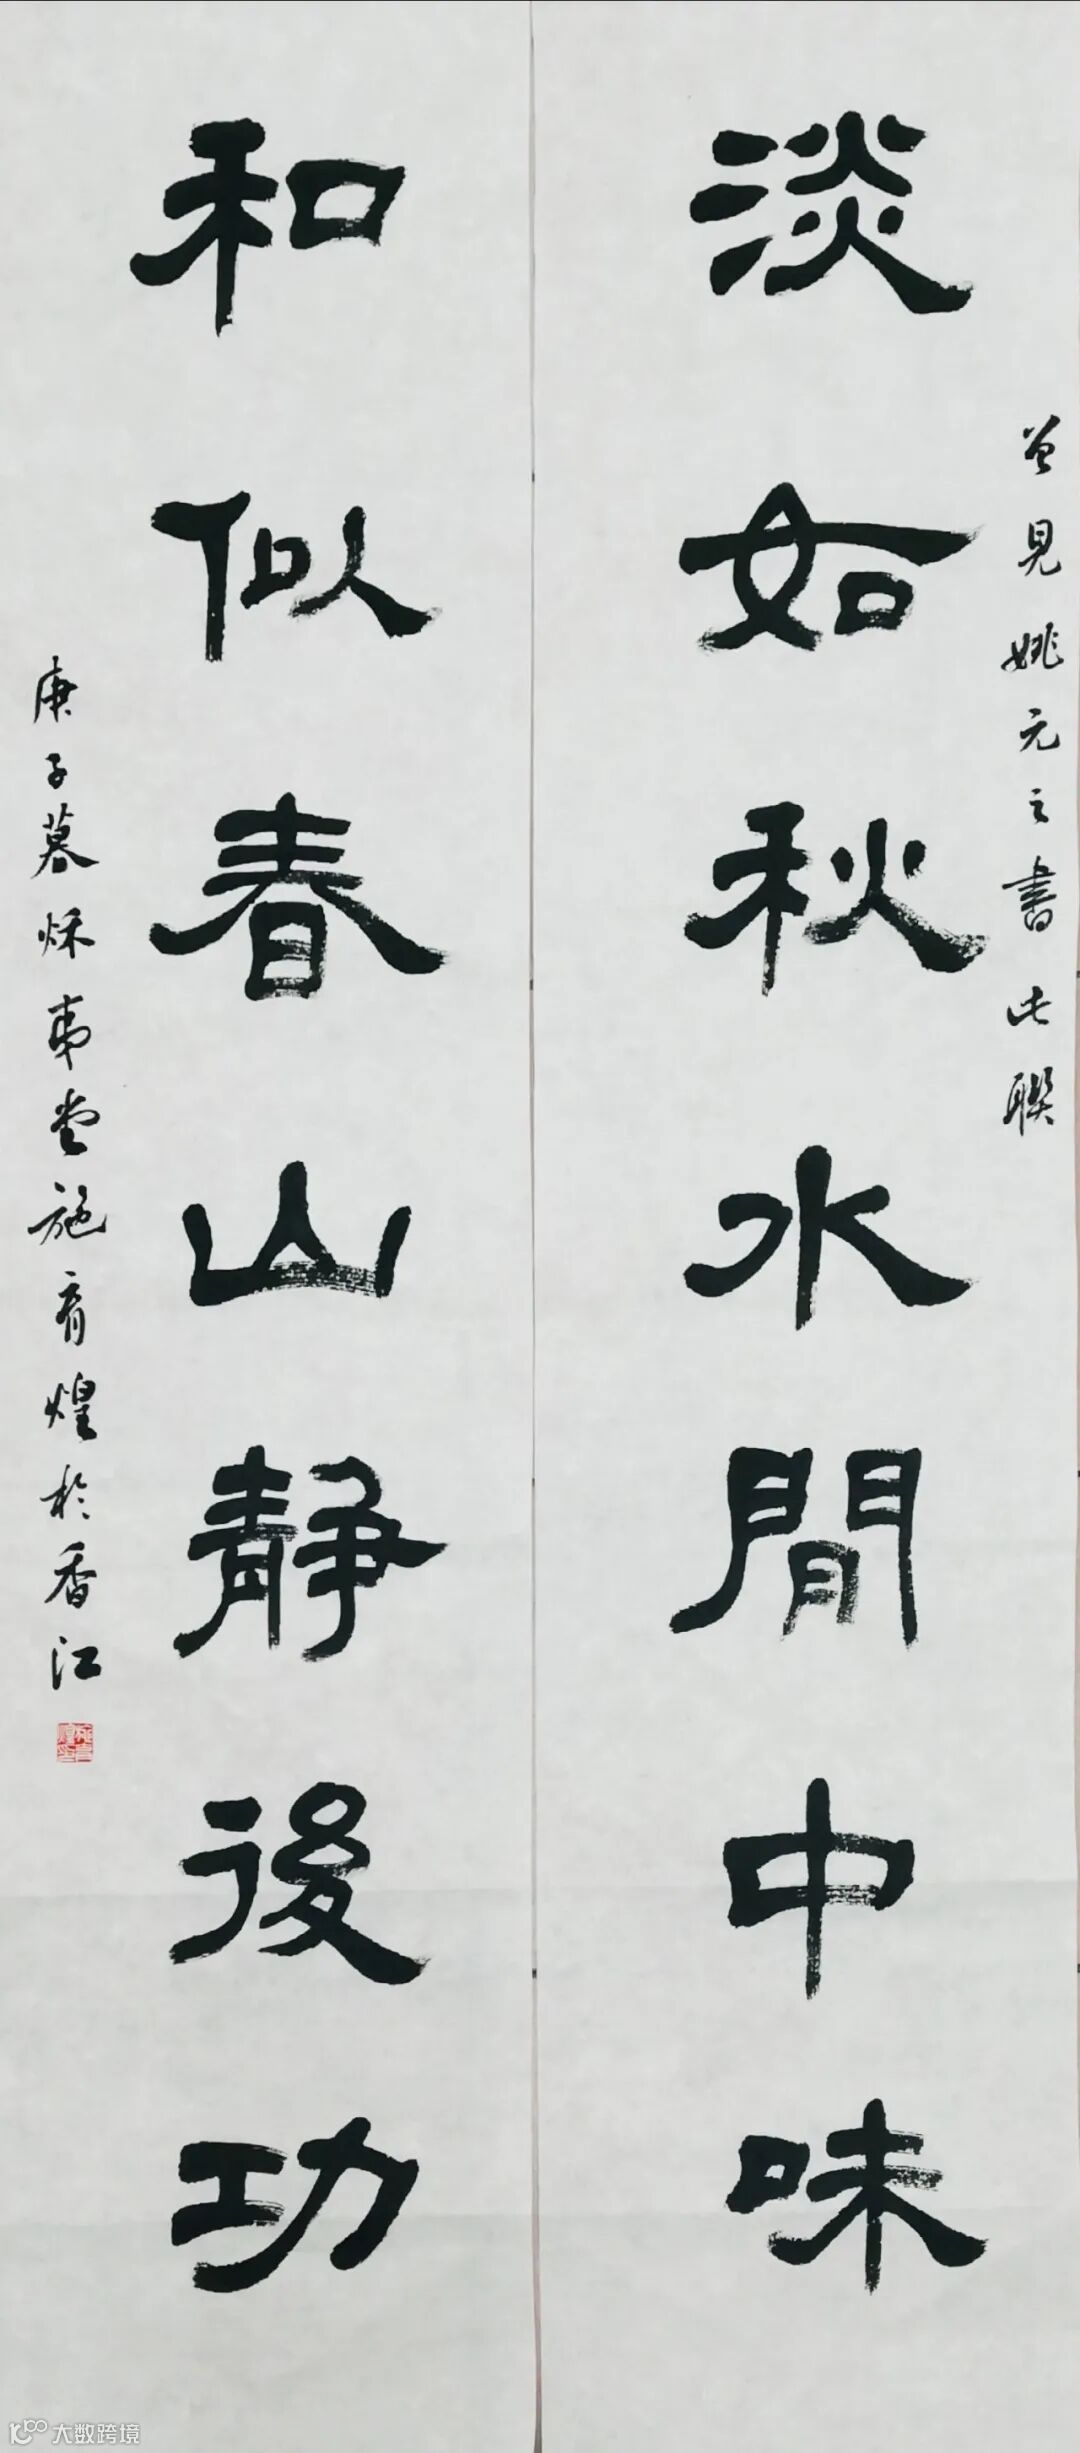 曾見姚元之書此聯
淡如秋水閒中味
和似春山靜後功
庚子暮烁弗堂施育煌於香江
大数跨境